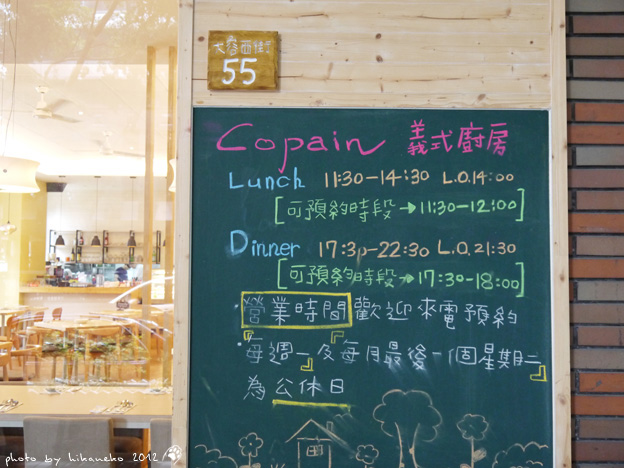 大容西街
55
Copain 義式廚房
Lunch 11:30-14:30 L.O.14:00
[可預約時段→11:30-12:00]
Dinner 17:30-22:30 L.O.21:30
[可預約時段→17:30-18:00]
·營業時間歡迎來電預約
·『每週一』及『每月最後一個星期二』
為公休日
photo by hikaneko 2012